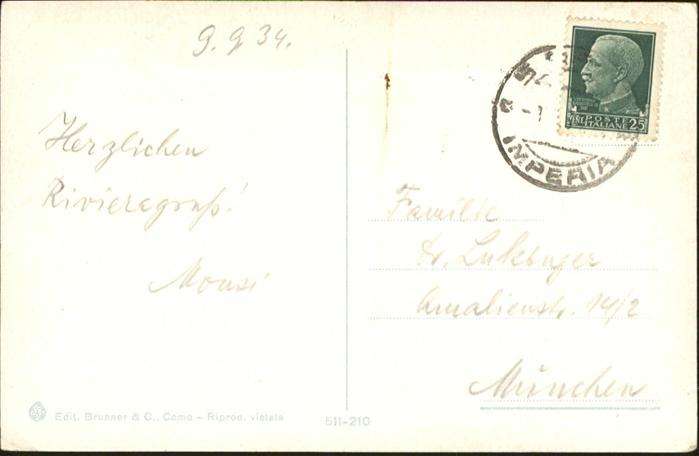 9.9 34.
Herzlichen
Rivieragruß!
Mousi
POSTE
ITALIANE 25
IMPERIA
Familie
Dr. Luksinger
Amalienstr. 14/2
München
Edit. Brunner & C., Como – Riprod. vietata
511-210